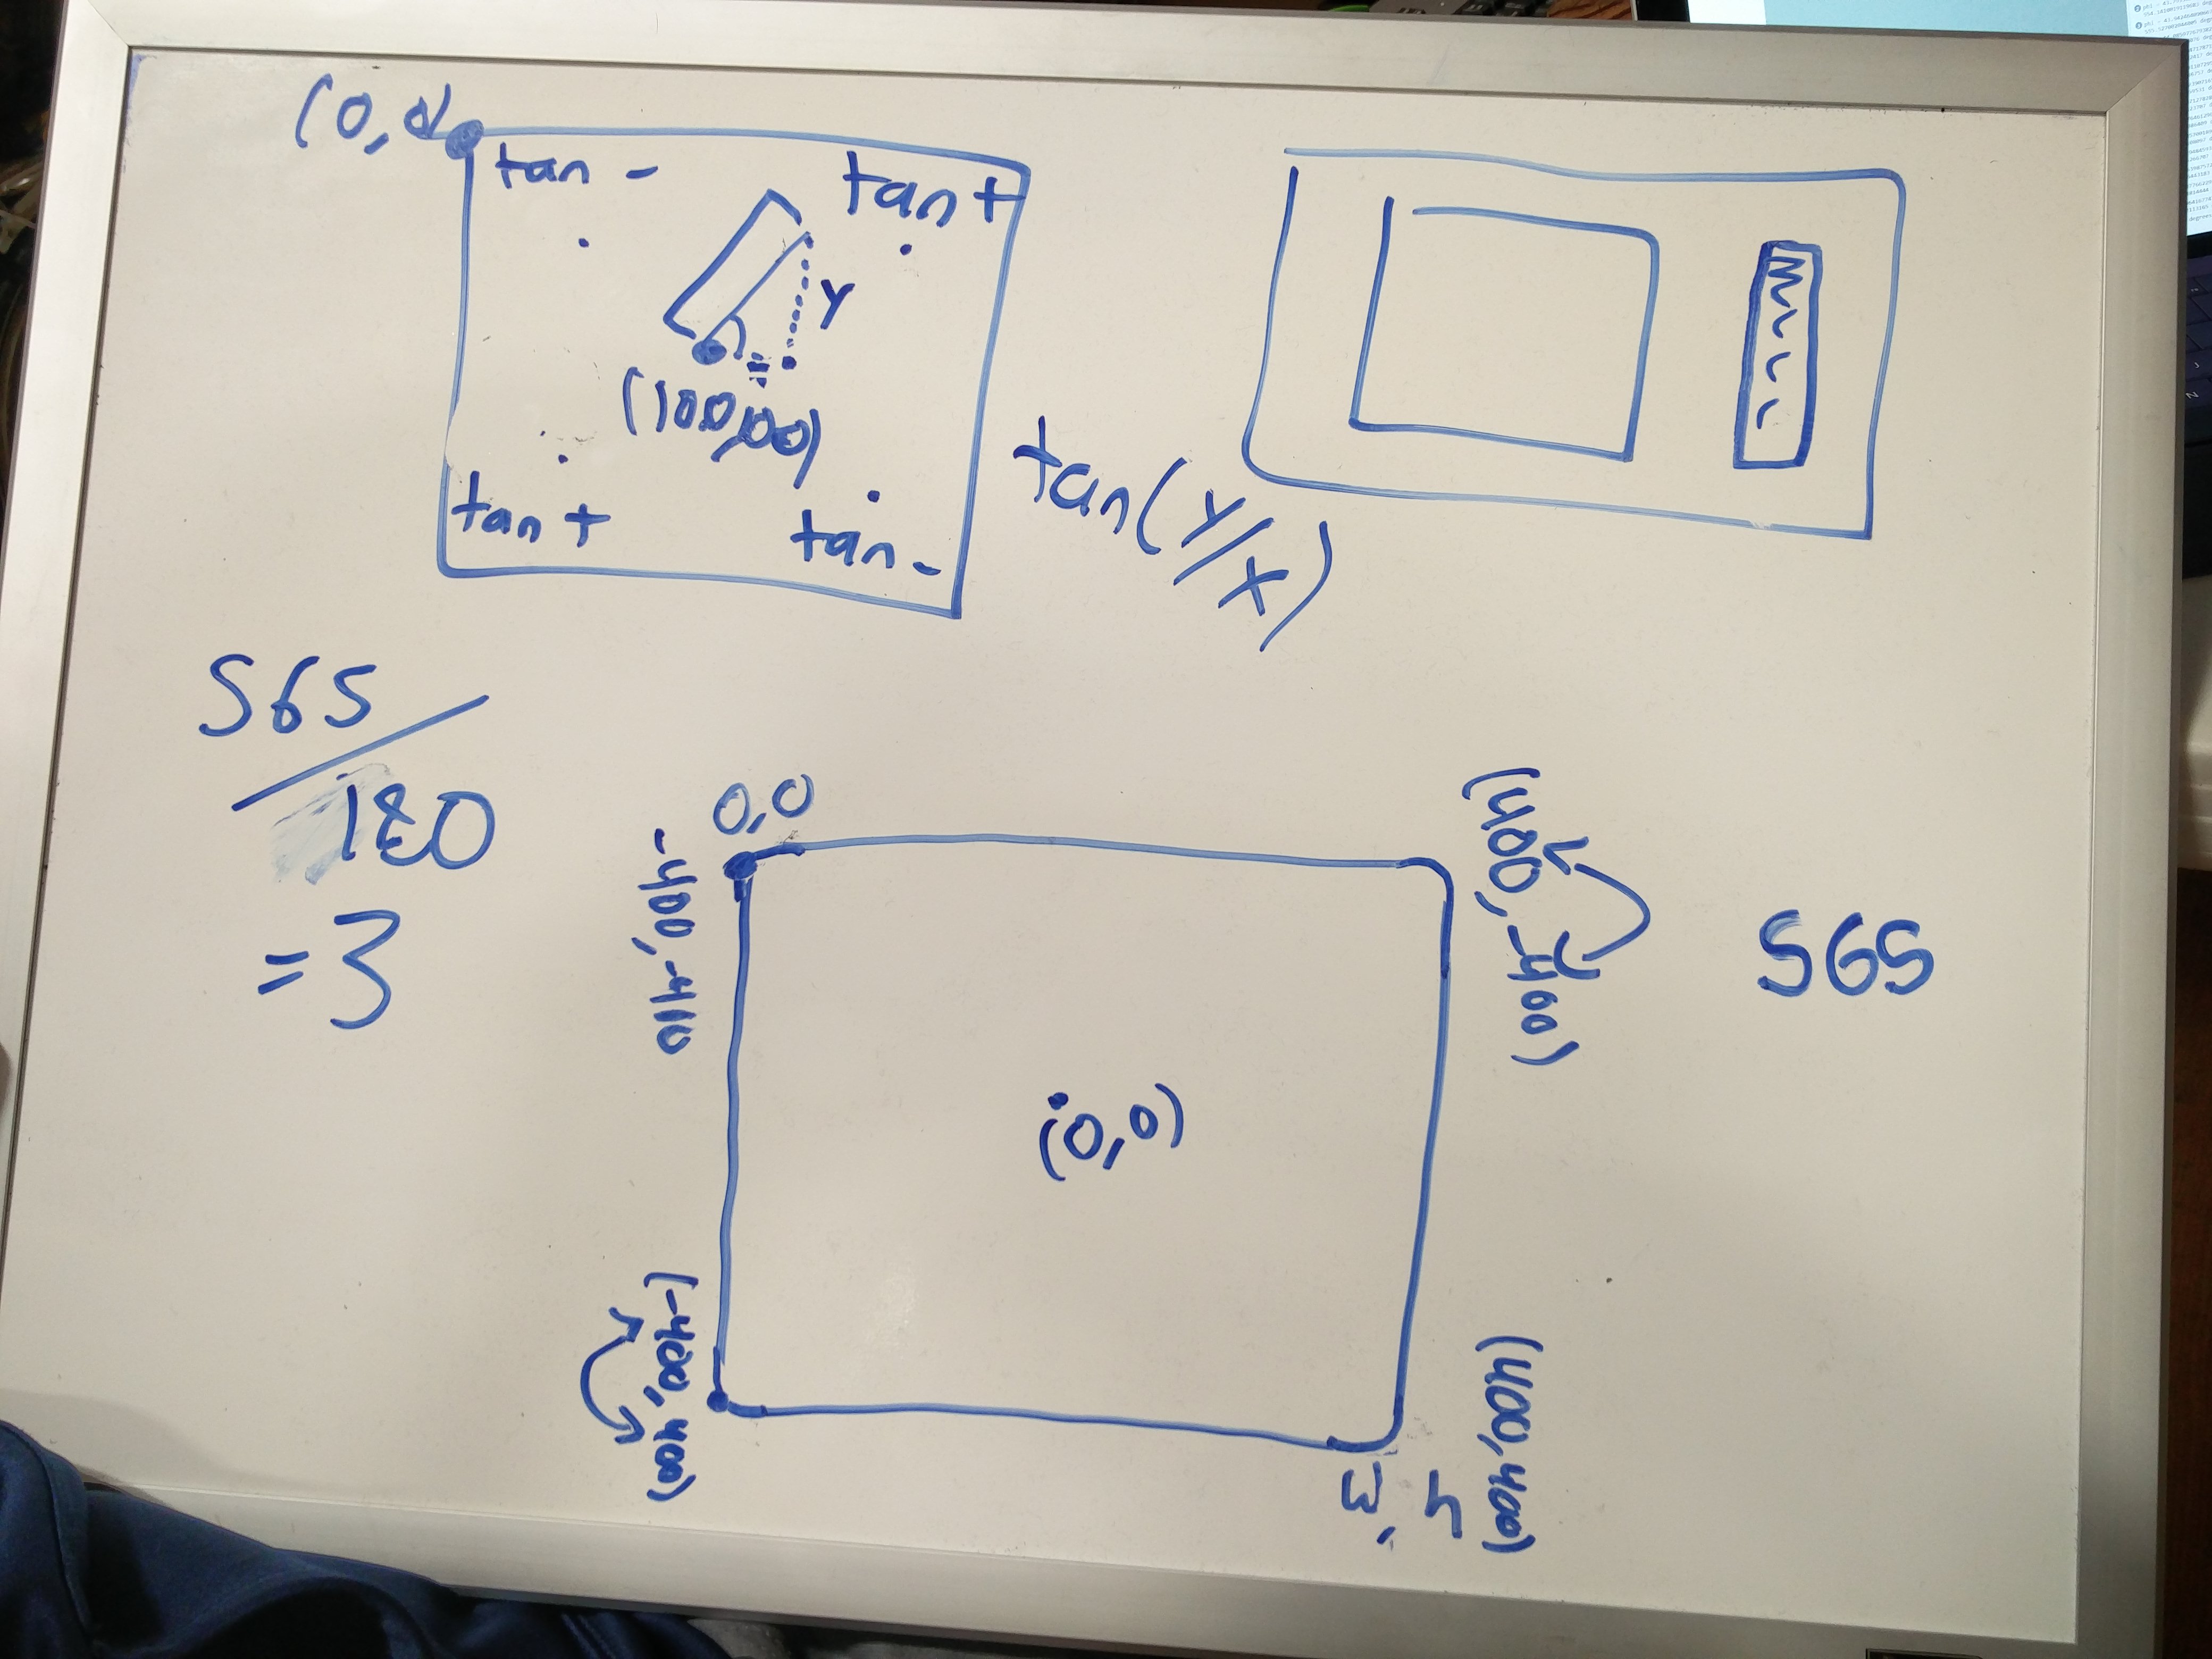 (0,0)
tan -
tan +
Y
(100,00)
tan +
tan -
tan(Y/X)
565
/
180
= 3
0,0
-400,-410
(400,-400)
565
(0,0)
(-400,400)
(400,400)
3,4